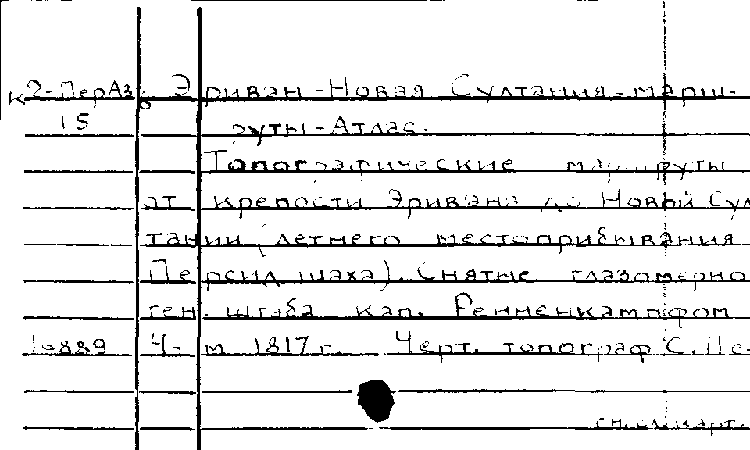 К2-ПерАз Эриван-Новая Султания-марш-
15 руты-Атлас.
Топографические маршруты
от крепости Эривана до Новой Сул
тании (летнего местоприбывания
Персид шаха). Снятые глазомерно
ген. штаба кап. Ренненкампфом
16889 Ч- м 1817 г. Черт. топограф С. Пе-
см. сл. карт.